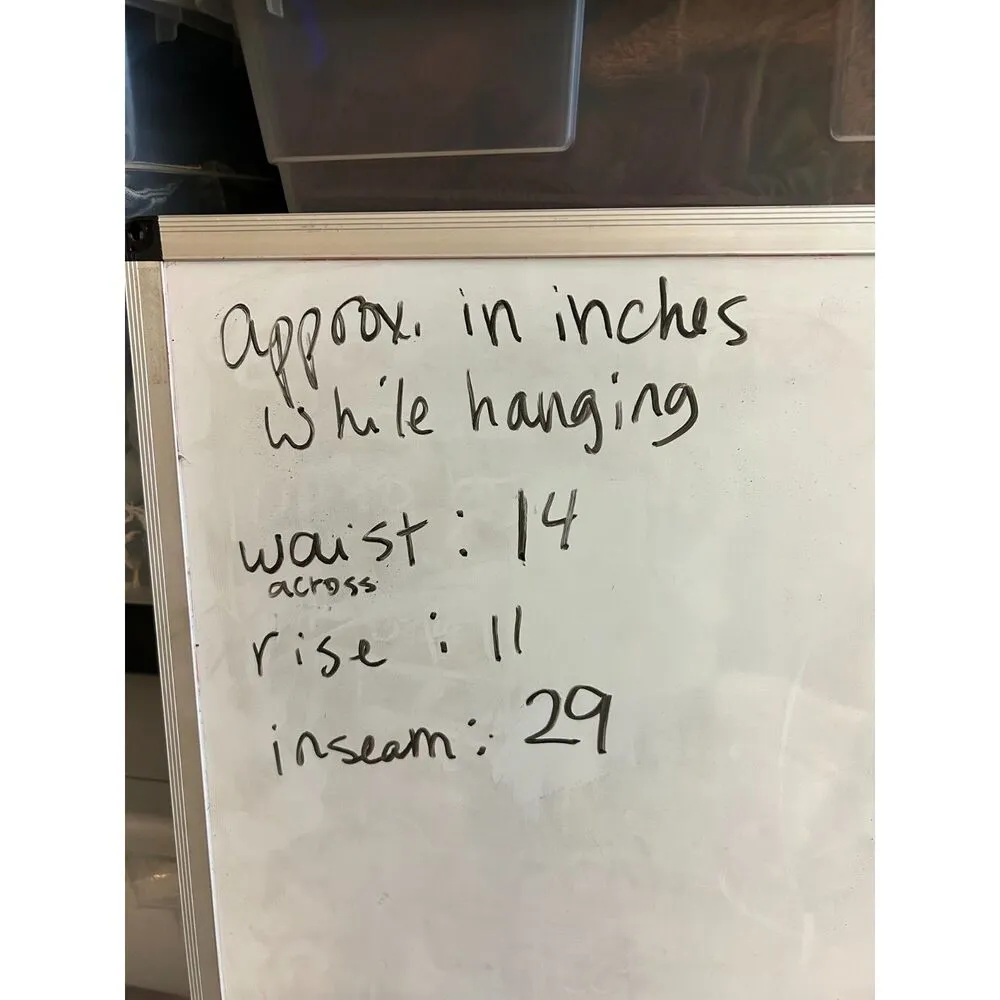 approx. in inches
while hanging
waist : 14
across
rise : 11
inseam : 29